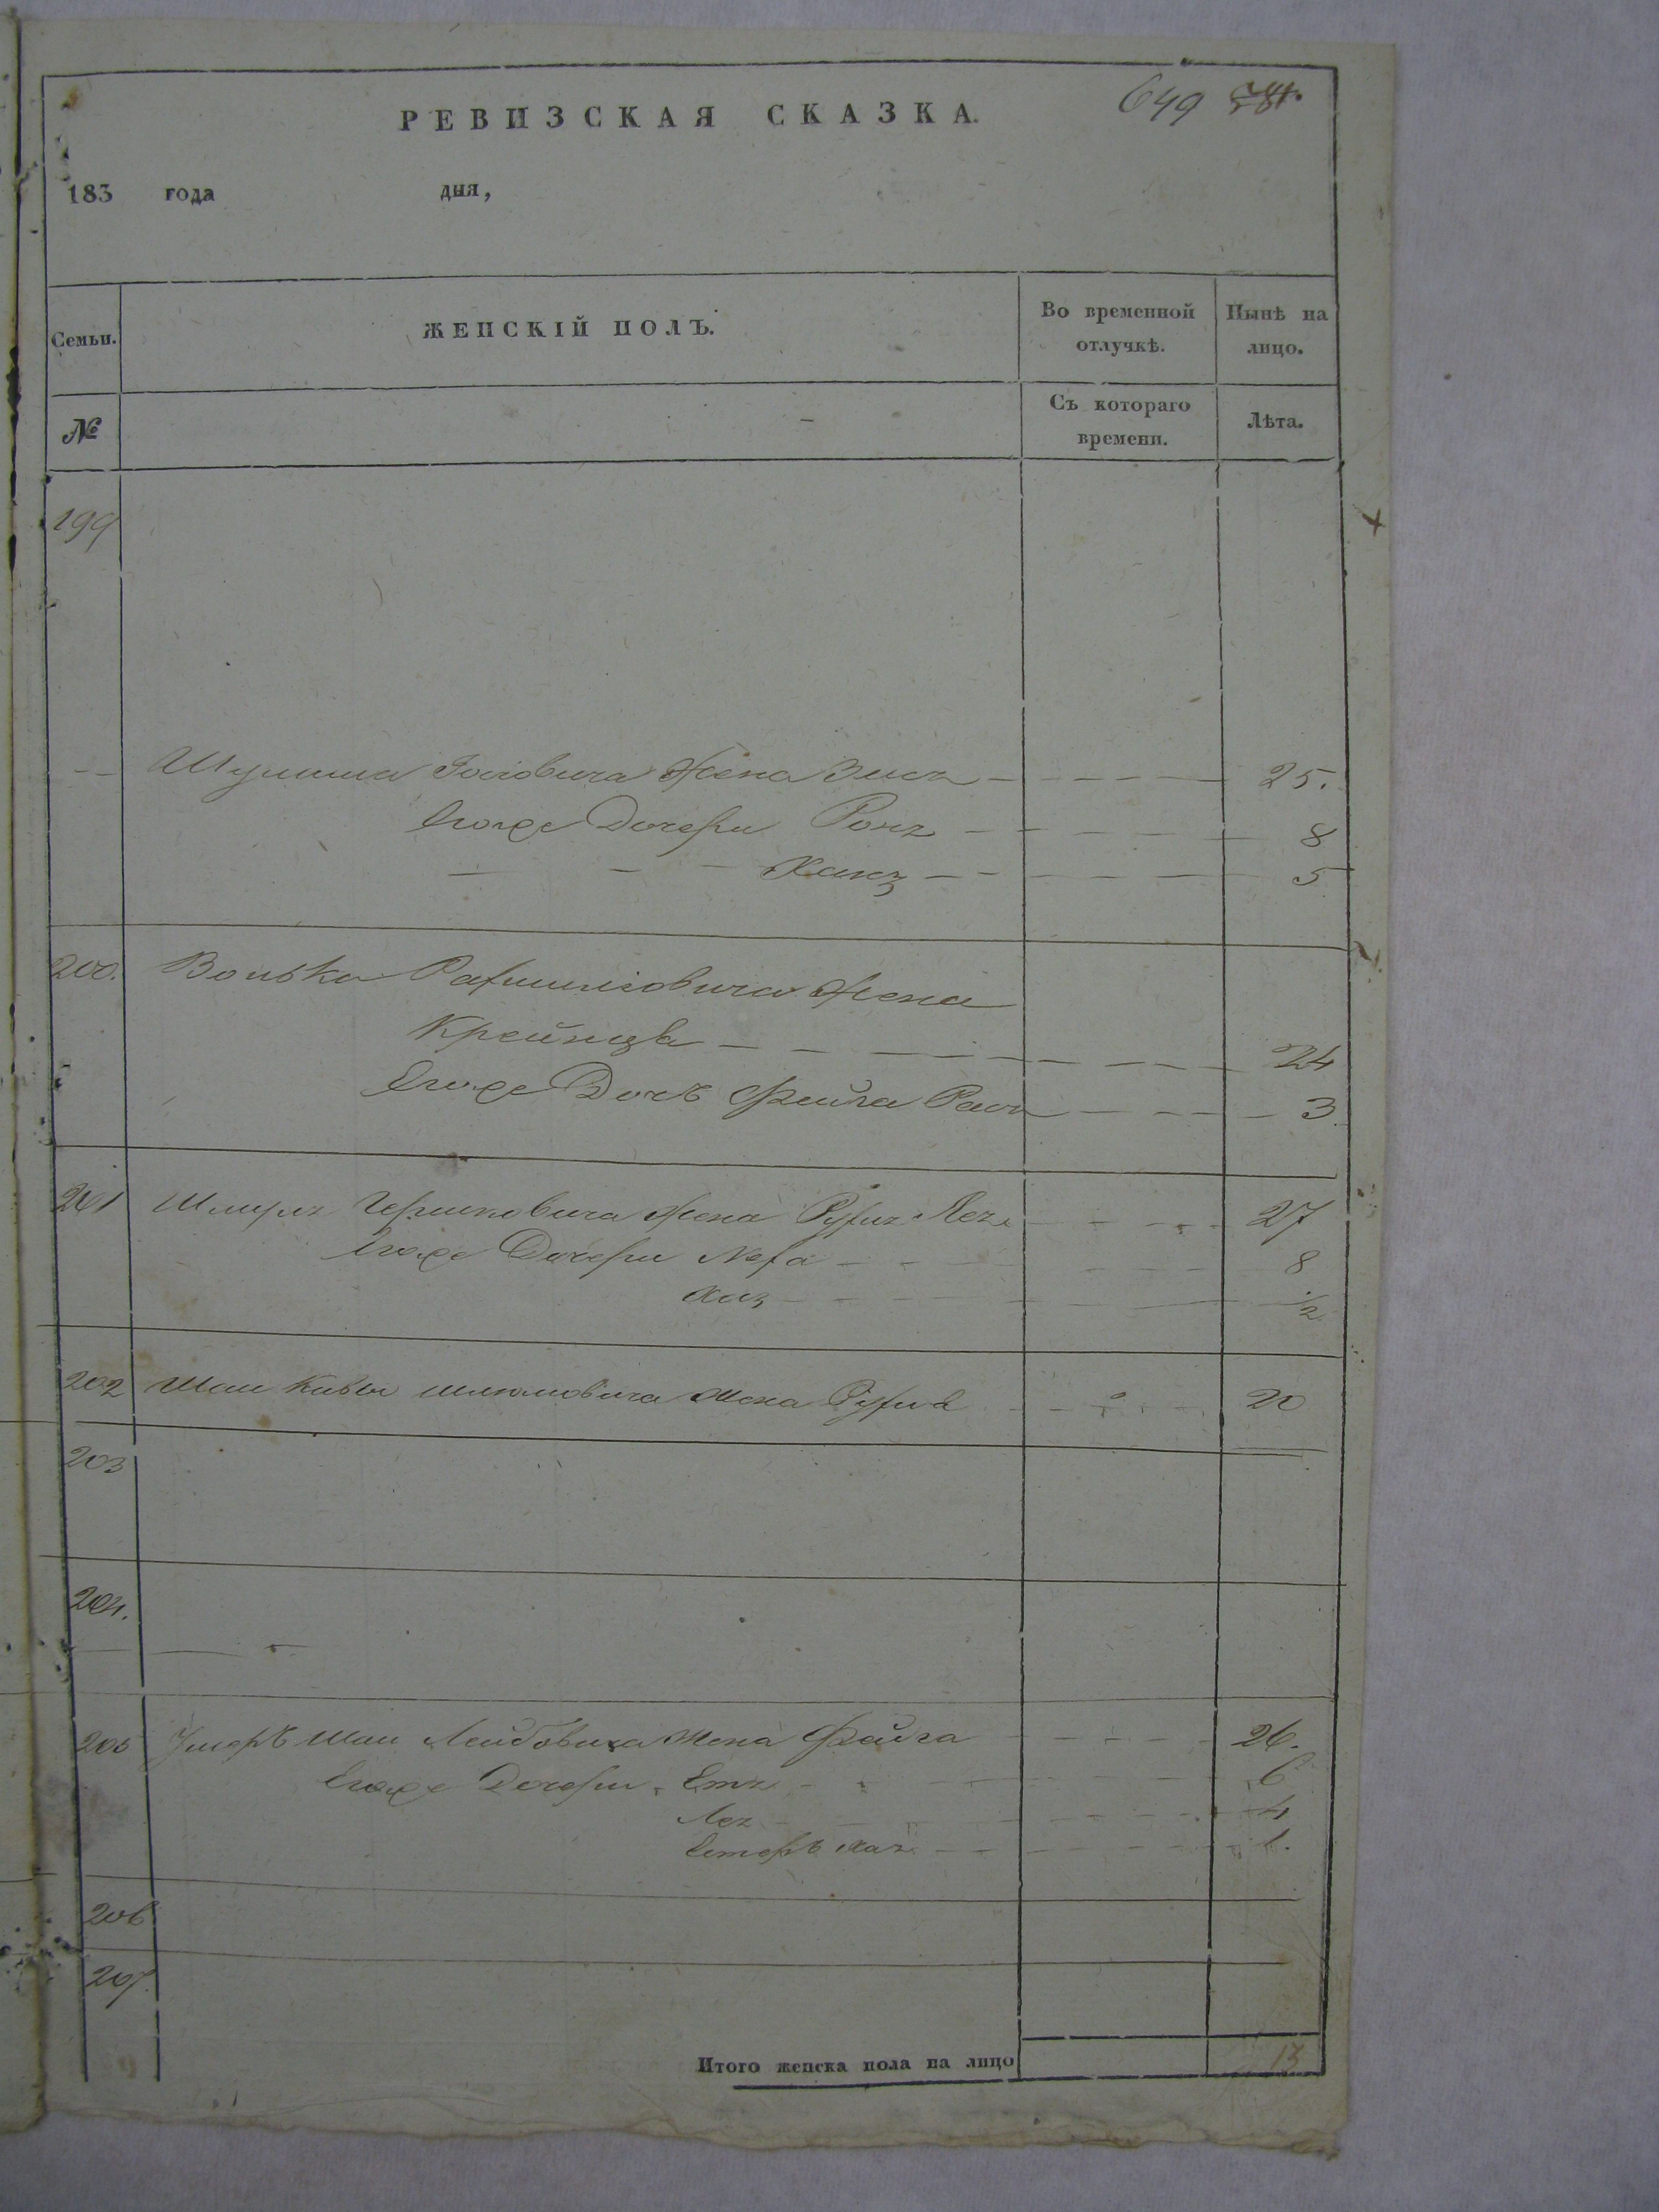 649
РЕВИЗСКАЯ СКАЗКА.
183 года дня,
Семьи.
ЖЕНСКІЙ ПОЛЪ.
Во временной
отлучкѣ.
Нынѣ на
лицо.
№
Съ котораго
времени.
Лѣта.
199
Жена Зися 25.
Егоже Дочери 8
Хана 5
200. Волька Жена
Крейнца 24
Егоже Дочь Фейга 3
201 Шмуля Гершковича Жена Лея 27
Егоже Дочери 8
Хая ½
202 Шаи Кивы Шлиомовича Жена 20
203
204.
205 Умеръ Шаи Лейбовича Жена Фейга 26.
Егоже Дочери Етя 6
Лея 4
Естеръ Хая 1.
206
207.
Итого женска пола на лицо 13